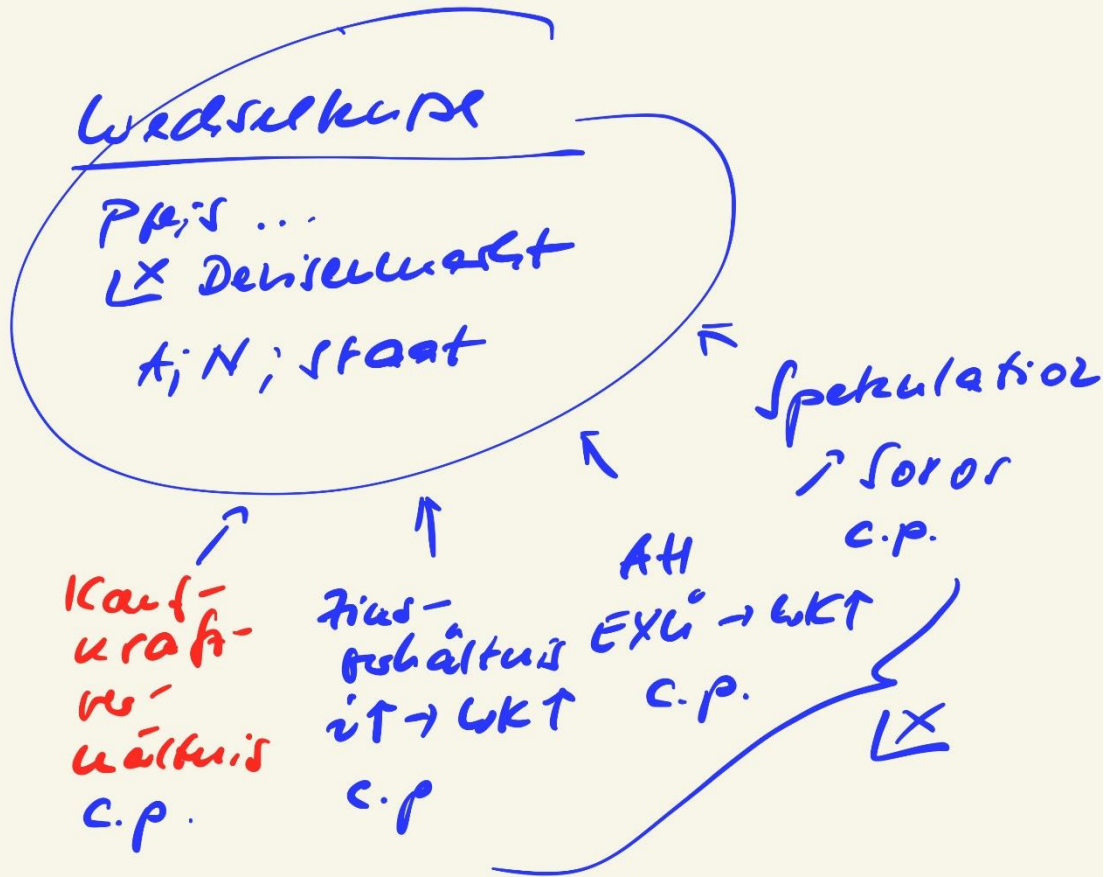 Wechselkurse
Preis ...
X Devisenmarkt
A; N; Staat
Spekulation
↗ Soros
c.p.
Kauf-
kraft-
ver-
hältnis
c.p.
Zins-
verhältnis
i↑ → WK↑
c.p
AH
EXÜ → WK↑
c.p.
X